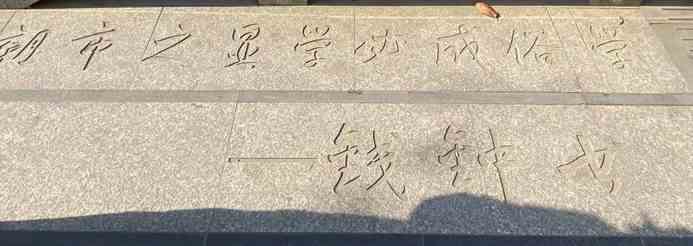 朝市之显学必成俗学
——钱钟书